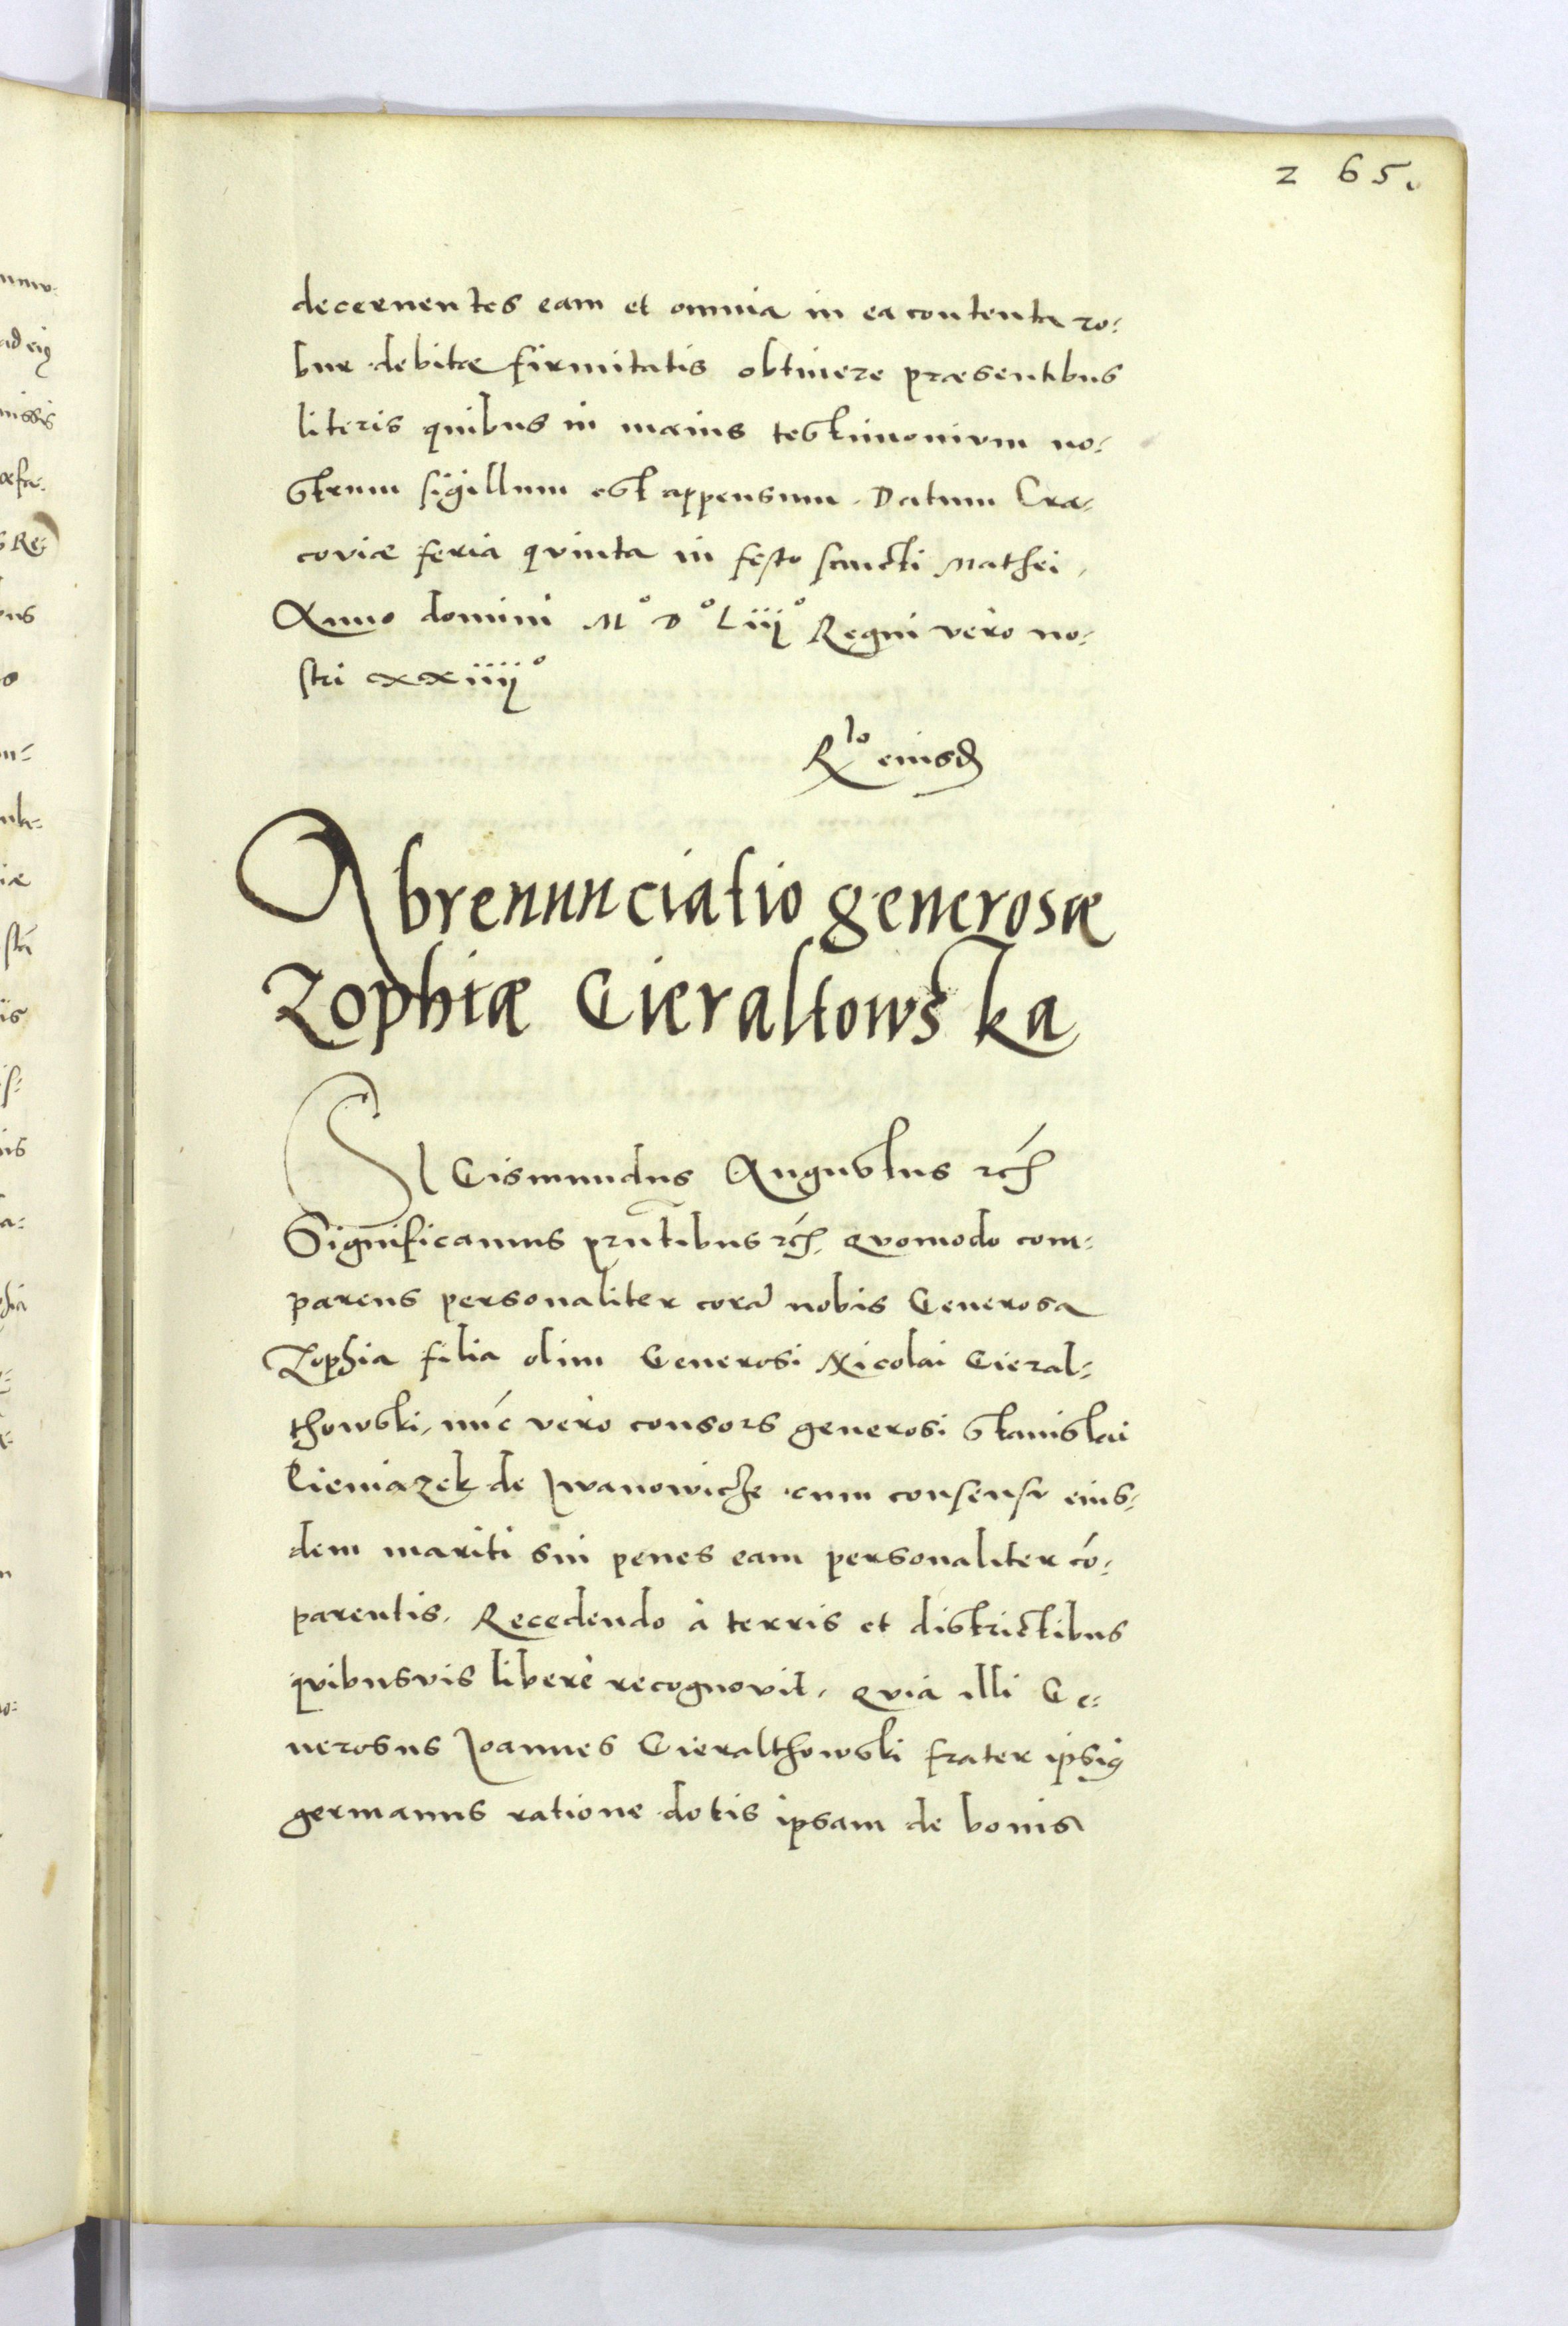 265.
decernentes eam et omnia in ea contenta ro:
bur debitæ firmitatis obtinere præsentibus
literis quibus in maius testimonium no:
strum sigillum est appensum. Datum Cra:
coviæ feria quinta in festo sancti Mathei,
Anno domini M° D° Liij° Regni vero no:
stri xxiiij°
Rlo eiusd
Abrenunciatio generosæ
Zophiæ Gieraltowska
SIGismundus Augustus rc
Significamus prntibus rc. Quomodo com:
parens personaliter cora nobis Generosa
Zophia filia olim Generosi Nicolai Gieral:
thowski, nuc vero consors generosi Stanislai
Cieniazek de Iwanowicze cum consensu eius:
dem mariti sui penes eam personaliter co:
parentis, Recedendo à terris et districtibus
quibusvis liberè recognovit, Quia illi Ge:
nerosus Joannes Gieralthowski frater ipsius
germanus ratione dotis ipsam de bonis